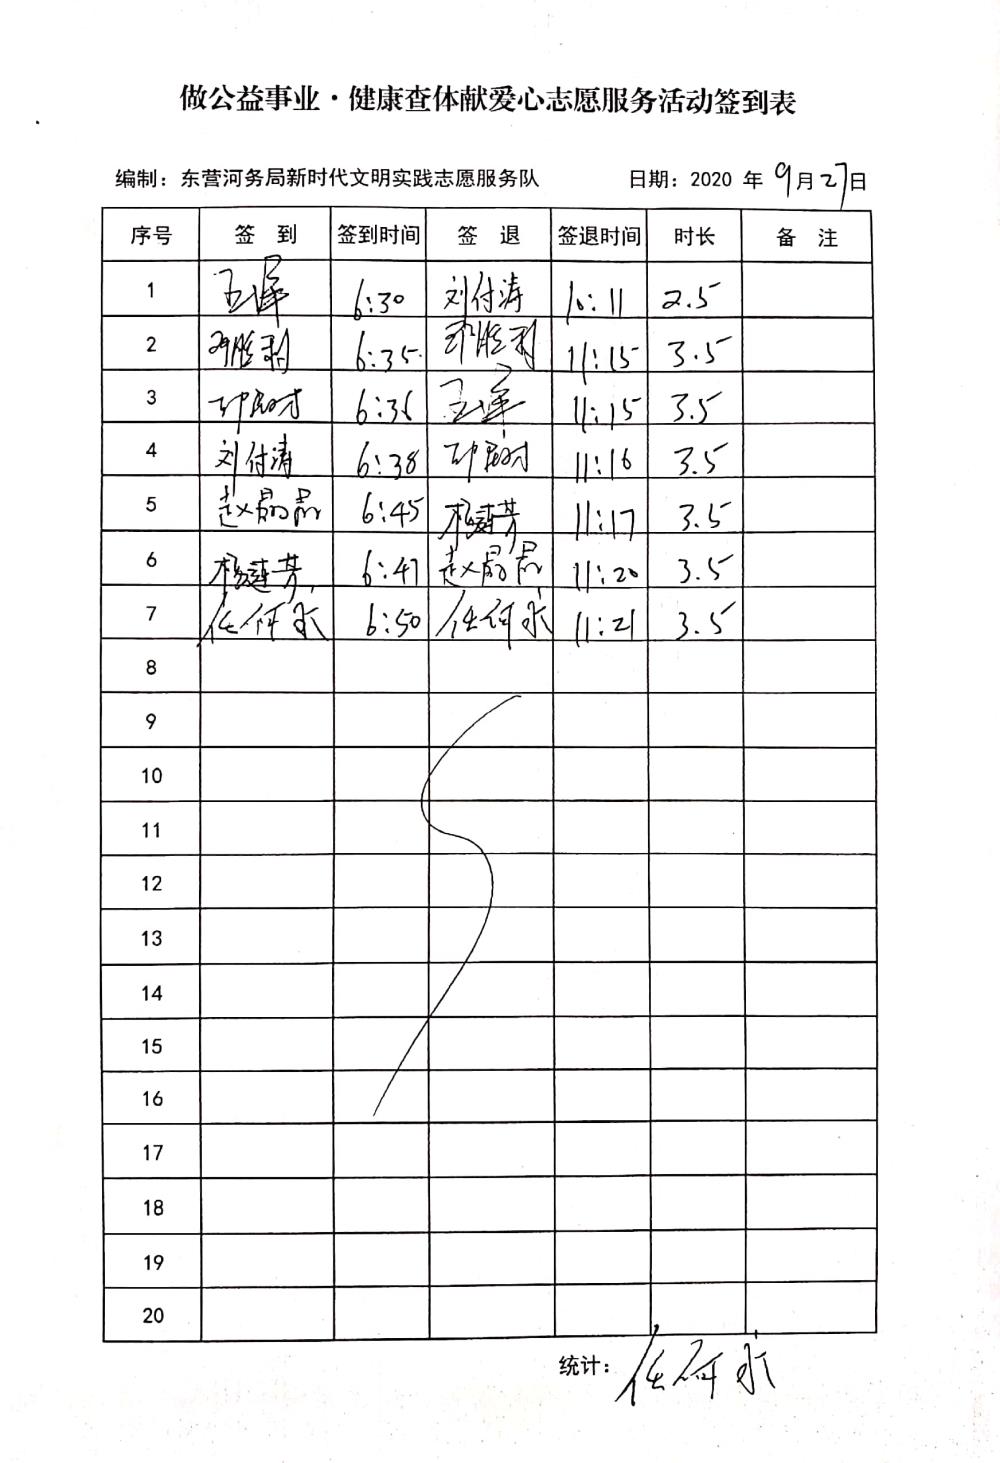 做公益事业·健康查体献爱心志愿服务活动签到表
编制：东营河务局新时代文明实践志愿服务队 日期：2020 年 9月27日
序号 签 到 签到时间 签 退 签退时间 时长 备 注
1 王军 6:30 刘付涛 10:11 2.5
2 邓胜利 6:35 邓胜利 11:15 3.5
3 6:36 王军 11:15 3.5
4 刘付涛 6:38 11:16 3.5
5 赵晶晶 6:45 杨莲芳 11:17 3.5
6 杨莲芳 6:47 赵晶晶 11:20 3.5
7 任何求 6:50 任何求 11:21 3.5
8
9
10
11
12
13
14
15
16
17
18
19
20
统计：任何求